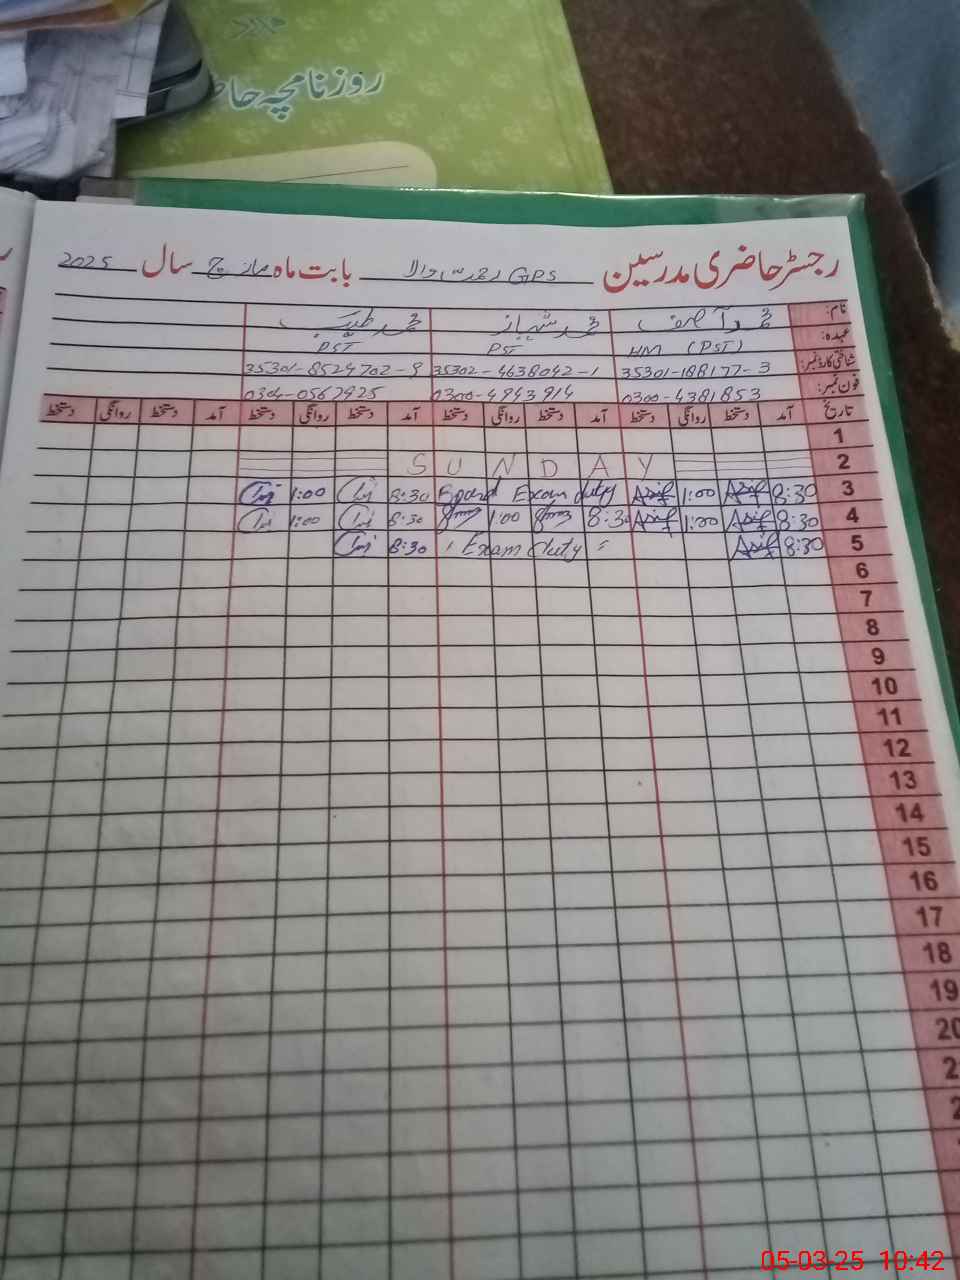 روزنامچہ حاضر
رجسٹر حاضری مدرسین GPS والا بابت ماہ مارچ سال 2025
نام: محمد آصف محمد شہباز محمد طیب
عہدہ: HM (PST) PST PST
شناختی کارڈ نمبر: 35301-188177-3 35302-4638042-1 35301-8524702-9
فون نمبر: 0300-4381853 0300-4943914 0304-0567925
تاریخ آمد دستخط روانگی دستخط آمد دستخط روانگی دستخط آمد دستخط روانگی دستخط آمد دستخط روانگی دستخط
1
2 SUNDAY
3 8:30 Asif 1:00 Asif Board Exam duty 8:30 1:00
4 8:30 Asif 1:00 Asif 8:30 1:00 8:30 1:00
5 8:30 Asif Exam duty 8:30
6
7
8
9
10
11
12
13
14
15
16
17
18
19
20
2
2
05-03-25 10:42